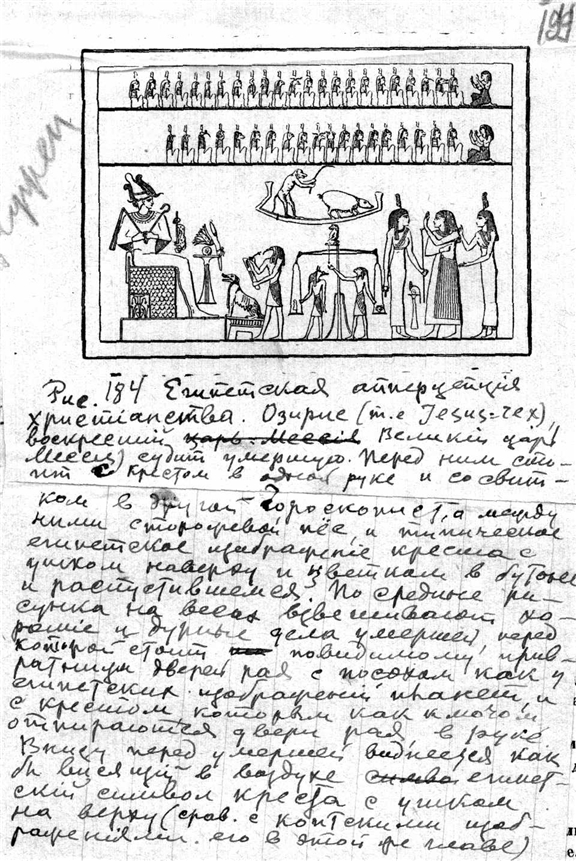 Рис. 184 Египетская апперцепция
христианства. Озирис (т.е Іезус-чех),
воскресший царь-Мессия Великій царь
Мессія) судит умершую. Перед ним сто-
ит с крестом в одной руке и со свит-
ком в другой Гороскопист, а между
ними сторожевой пёс, и типическое
египетское изображение креста с
ушком наверху и цветком в бутоне
и распустившемся. По средине ри-
сунка на весах взвешивают хо-
рошіе и дурные дела умершей, перед
которой стоит повидимому прив-
ратница дверей рая с посохом как у
египетских изображеній планет, и
с крестом которым как ключом
отпираются двери рая в руке
Внизу перед умершей виднеется как
бы висящий в воздухе символ египет-
ский символ креста с ушком
на верху (срав. с коптскими изоб-
ражениями его в этой же главе)